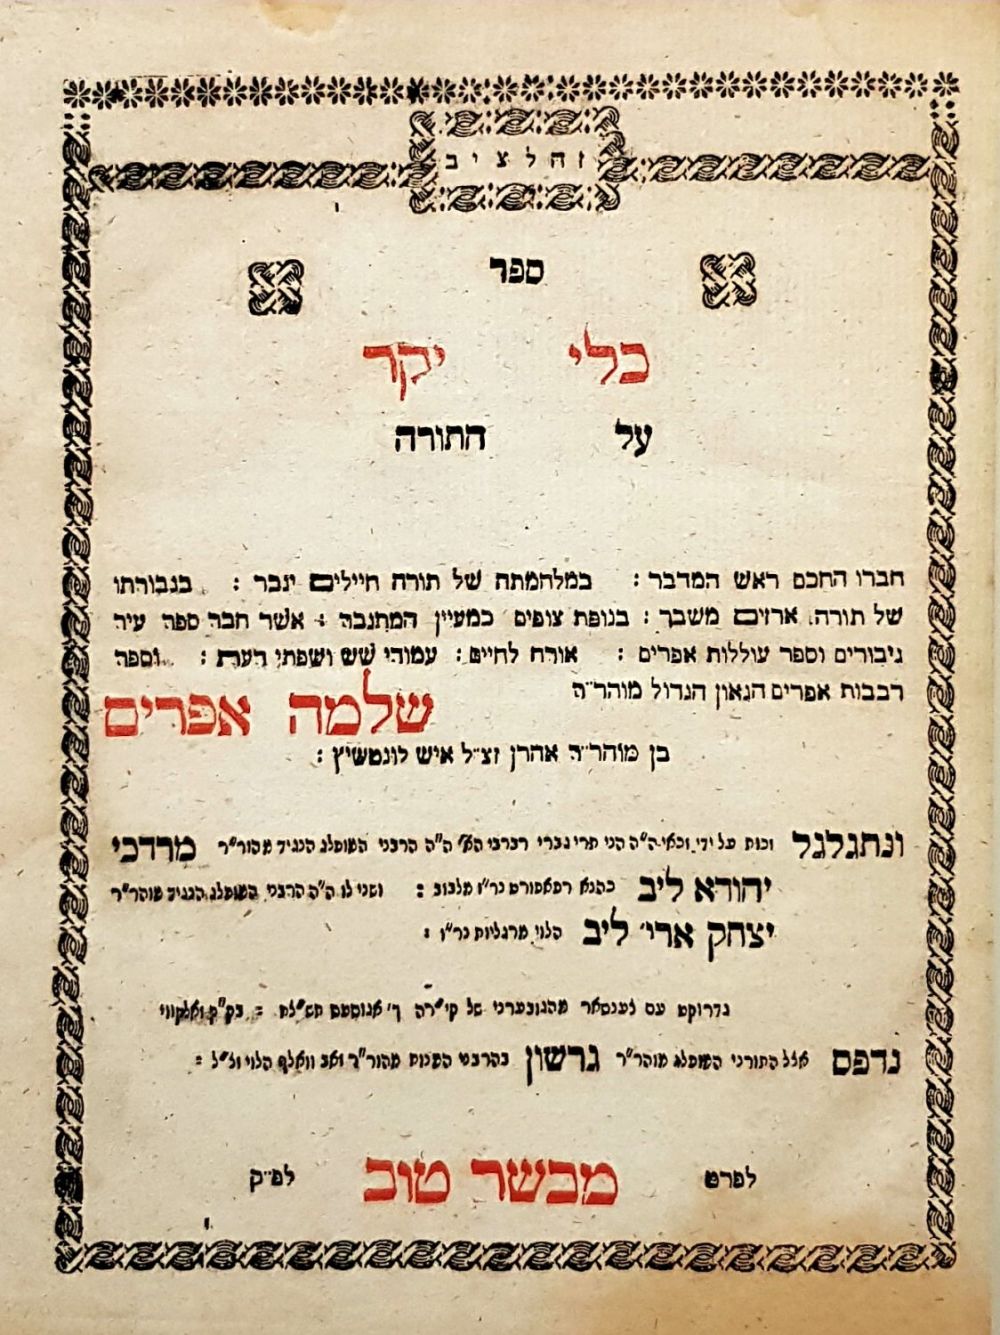 זהלציב
ספר
כלי יקר
על התורה
חברו החכם ראש המדבר : במלחמתה של תורה חיילים יגבר : בגבורתו
של תורה ארזים משבר : בנופת צופים כמעיין המתגבר : אשר חבר ספר עיר
גיבורים וספר עוללות אפרים : אורח לחיים : עמודי שש ושפתי דעת : וספר
רבבות אפרים הגאון הגדול מוהר״ר שלמה אפרים
בן מוהר״ר אהרן זצ״ל איש לונטשיץ :
ונתגלגל זכות על ידי זכאי ה״ה הני תרי גברי רברבי ה״ה הרבני המופלג הנגיד מהור״ר מרדכי
יהודא ליב כהנא ראפאפורט נר״ו מלבוב : ושני לו ה״ה הרבני המופלג הנגיד מוהר״ר
יצחק ארי׳ ליב הלוי מרגליות נר״ו :
נדרוקט עם לענסאר מהגובערני של קי״רה
נדפס אצל התורני המופלג מוהר״ר גרשון בהרבני המנוח מהור״ר זאב וואלף הלוי ז״ל :
לפרט מבשר טוב לפ״ק